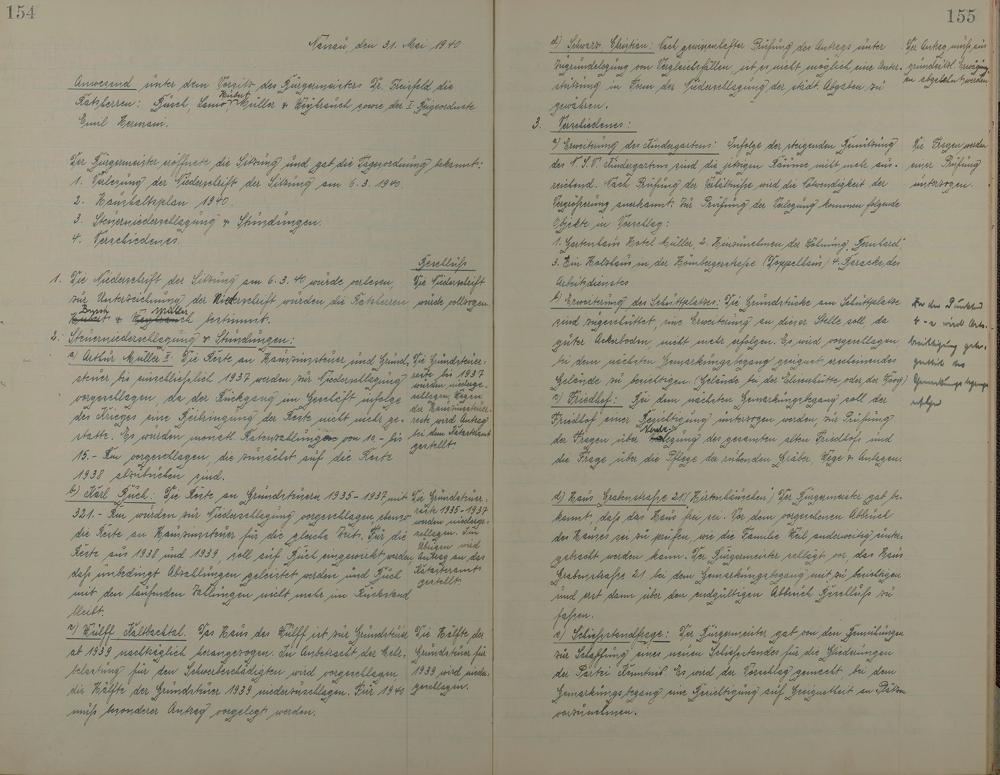 154
Nassau, den 31. Mai 1940
Anwesend unter dem Vorsitz des Bürgermeisters Dr. die
Ratsherren: Busch, Hubert Müller & sowie der I. Beigeordnete
Emil Hermani.
Der Bürgermeister eröffnete die Sitzung und gab die Tagesordnung bekannt:
1. Verlesung der Niederschrift der Sitzung am 6.3.1940.
2. Haushaltsplan 1940
3. Steuerniederschlagung & Stundungen.
4. Verschiedenes.
Beschluß
1. Die Niederschrift der Sitzung am 6.3.40 wurde verlesen,
zur Unterzeichnung der Niederschrift wurden die Ratsherren
Busch & Müller bestimmt.
Die Niederschrift
wurde vollzogen
2. Steuerniederschlagung & Stundungen:
a) Arthur Müller II: Die Reste an Hauszinssteuer und Grund-
steuer bis einschließlich 1937 werden zur Niederschlagung
vorgeschlagen, da der Rückgang im Geschäft infolge
des Krieges eine Beibringung der Reste nicht mehr ge-
statte. Es wurden monatl. Ratenzahlungen von 10.- bis
15.- Rm vorgeschlagen die zunächst auf die Reste
1938 abzubuchen sind.
Die Grundsteuer-
reste bis 1937
wurden niederge-
schlagen. Wegen
der Hauszinssteuer-
reste wird Antrag
bei dem Katasteramt
gestellt.
b) Karl Buch: Die Reste an Grundsteuern 1935-1937 mit
321.- Rm wurden zur Niederschlagung vorgeschlagen ebenso
die Reste an Hauszinssteuer für die gleiche Zeit. Für die
Reste aus 1938 und 1939 soll auf Buch eingewirkt werden
daß unbedingt Abzahlungen geleistet werden und Buch
mit den laufenden Zahlungen nicht mehr im Rückstand
bleibt.
Die Grundsteuer-
reste 1935-1937
wurden niederge-
schlagen. Im
Übrigen wird
Antrag an das
Katasteramt
gestellt
c) Wulff Kaltbachtal. Das Haus des Wulff ist zur Grundsteuer
ab 1939 nachträglich herangezogen. In Anbetracht der Mehr-
belastung für den Schwerbeschädigten wird vorgeschlagen
die Hälfte der Grundsteuer 1939 niederzuschlagen. Für 1940
muß besonderer Antrag vorgelegt werden.
Die Hälfte der
Grundsteuer für
1939 wird nieder-
geschlagen.
155
d) Schwarz, Christian: Nach gewissenhafter Prüfung des Antrags unter
Zugrundelegung von Vergleichsfällen, ist es nicht möglich, eine Unter-
stützung in Form der Niederschlagung der städt. Abgaben zu
gewähren.
Der Antrag muß
abgelehnt werden
3. Verschiedenes:
a) Erweiterung des Kindergartens: Infolge der steigenden Benutzung
des N.S.V. Kindergartens sind die jetzigen Räume nicht mehr aus-
reichend. Nach Prüfung der Verhältnisse wird die Notwendigkeit der
Vergrößerung anerkannt. Zur Prüfung der Verlegung kommen folgende
Objekte in Vorschlag:
1. Gartenhaus Hotel Müller, 2. Hinzunehmen der Wohnung "Bernhard"
3. Ein Holzhaus in der Hömbergerstraße (Doppelhaus) 4. Baracke des
Arbeitsdienstes
Die Fragen werden
einer Prüfung
unterzogen.
b) Erweiterung des Schuttplatzes: Die Grundstücke am Schuttplatz
sind zugeschüttet, eine Erweiterung an dieser Stelle soll da
guter Ackerboden nicht mehr erfolgen. Es wird vorgeschlagen
bei dem nächsten Gemarkungsbegang geeignet erscheinendes
Gelände zu besichtigen (Gelände bei der Elisenhütte oder der Woog)
c) Friedhof: Bei dem nächsten Gemarkungsbegang soll der
Friedhof einer Besichtigung unterzogen werden zur Prüfung
der Fragen über Neu-legung des gesamten alten Friedhofs und
die Frage über die Pflege der ruhenden Gräber, Wege & Anlagen.
d) Haus Grabenstraße 21 (Hirtenhäuschen) Der Bürgermeister gab be-
kannt, daß das Haus frei sei. Vor dem vorgesehenen Abbruch
des Hauses sei zu prüfen, wie die Familie anderweitig unter-
gebracht werden kann. Der Bürgermeister schlägt vor das Haus
Grabenstraße 21 bei dem Gemarkungsbegang mit zu besichtigen
und erst dann über den endgültigen Abbruch Beschluß zu
fassen.
e) Schießstandfrage: Der Bürgermeister gab von den Bemühungen
zur Schaffung eines neuen Schießstandes für die Gliederungen
der Partei Kenntnis. Es wird der Vorschlag gemacht bei dem
Gemarkungsbegang eine Besichtigung auf Geeignetheit an Plätzen
vorzunehmen.